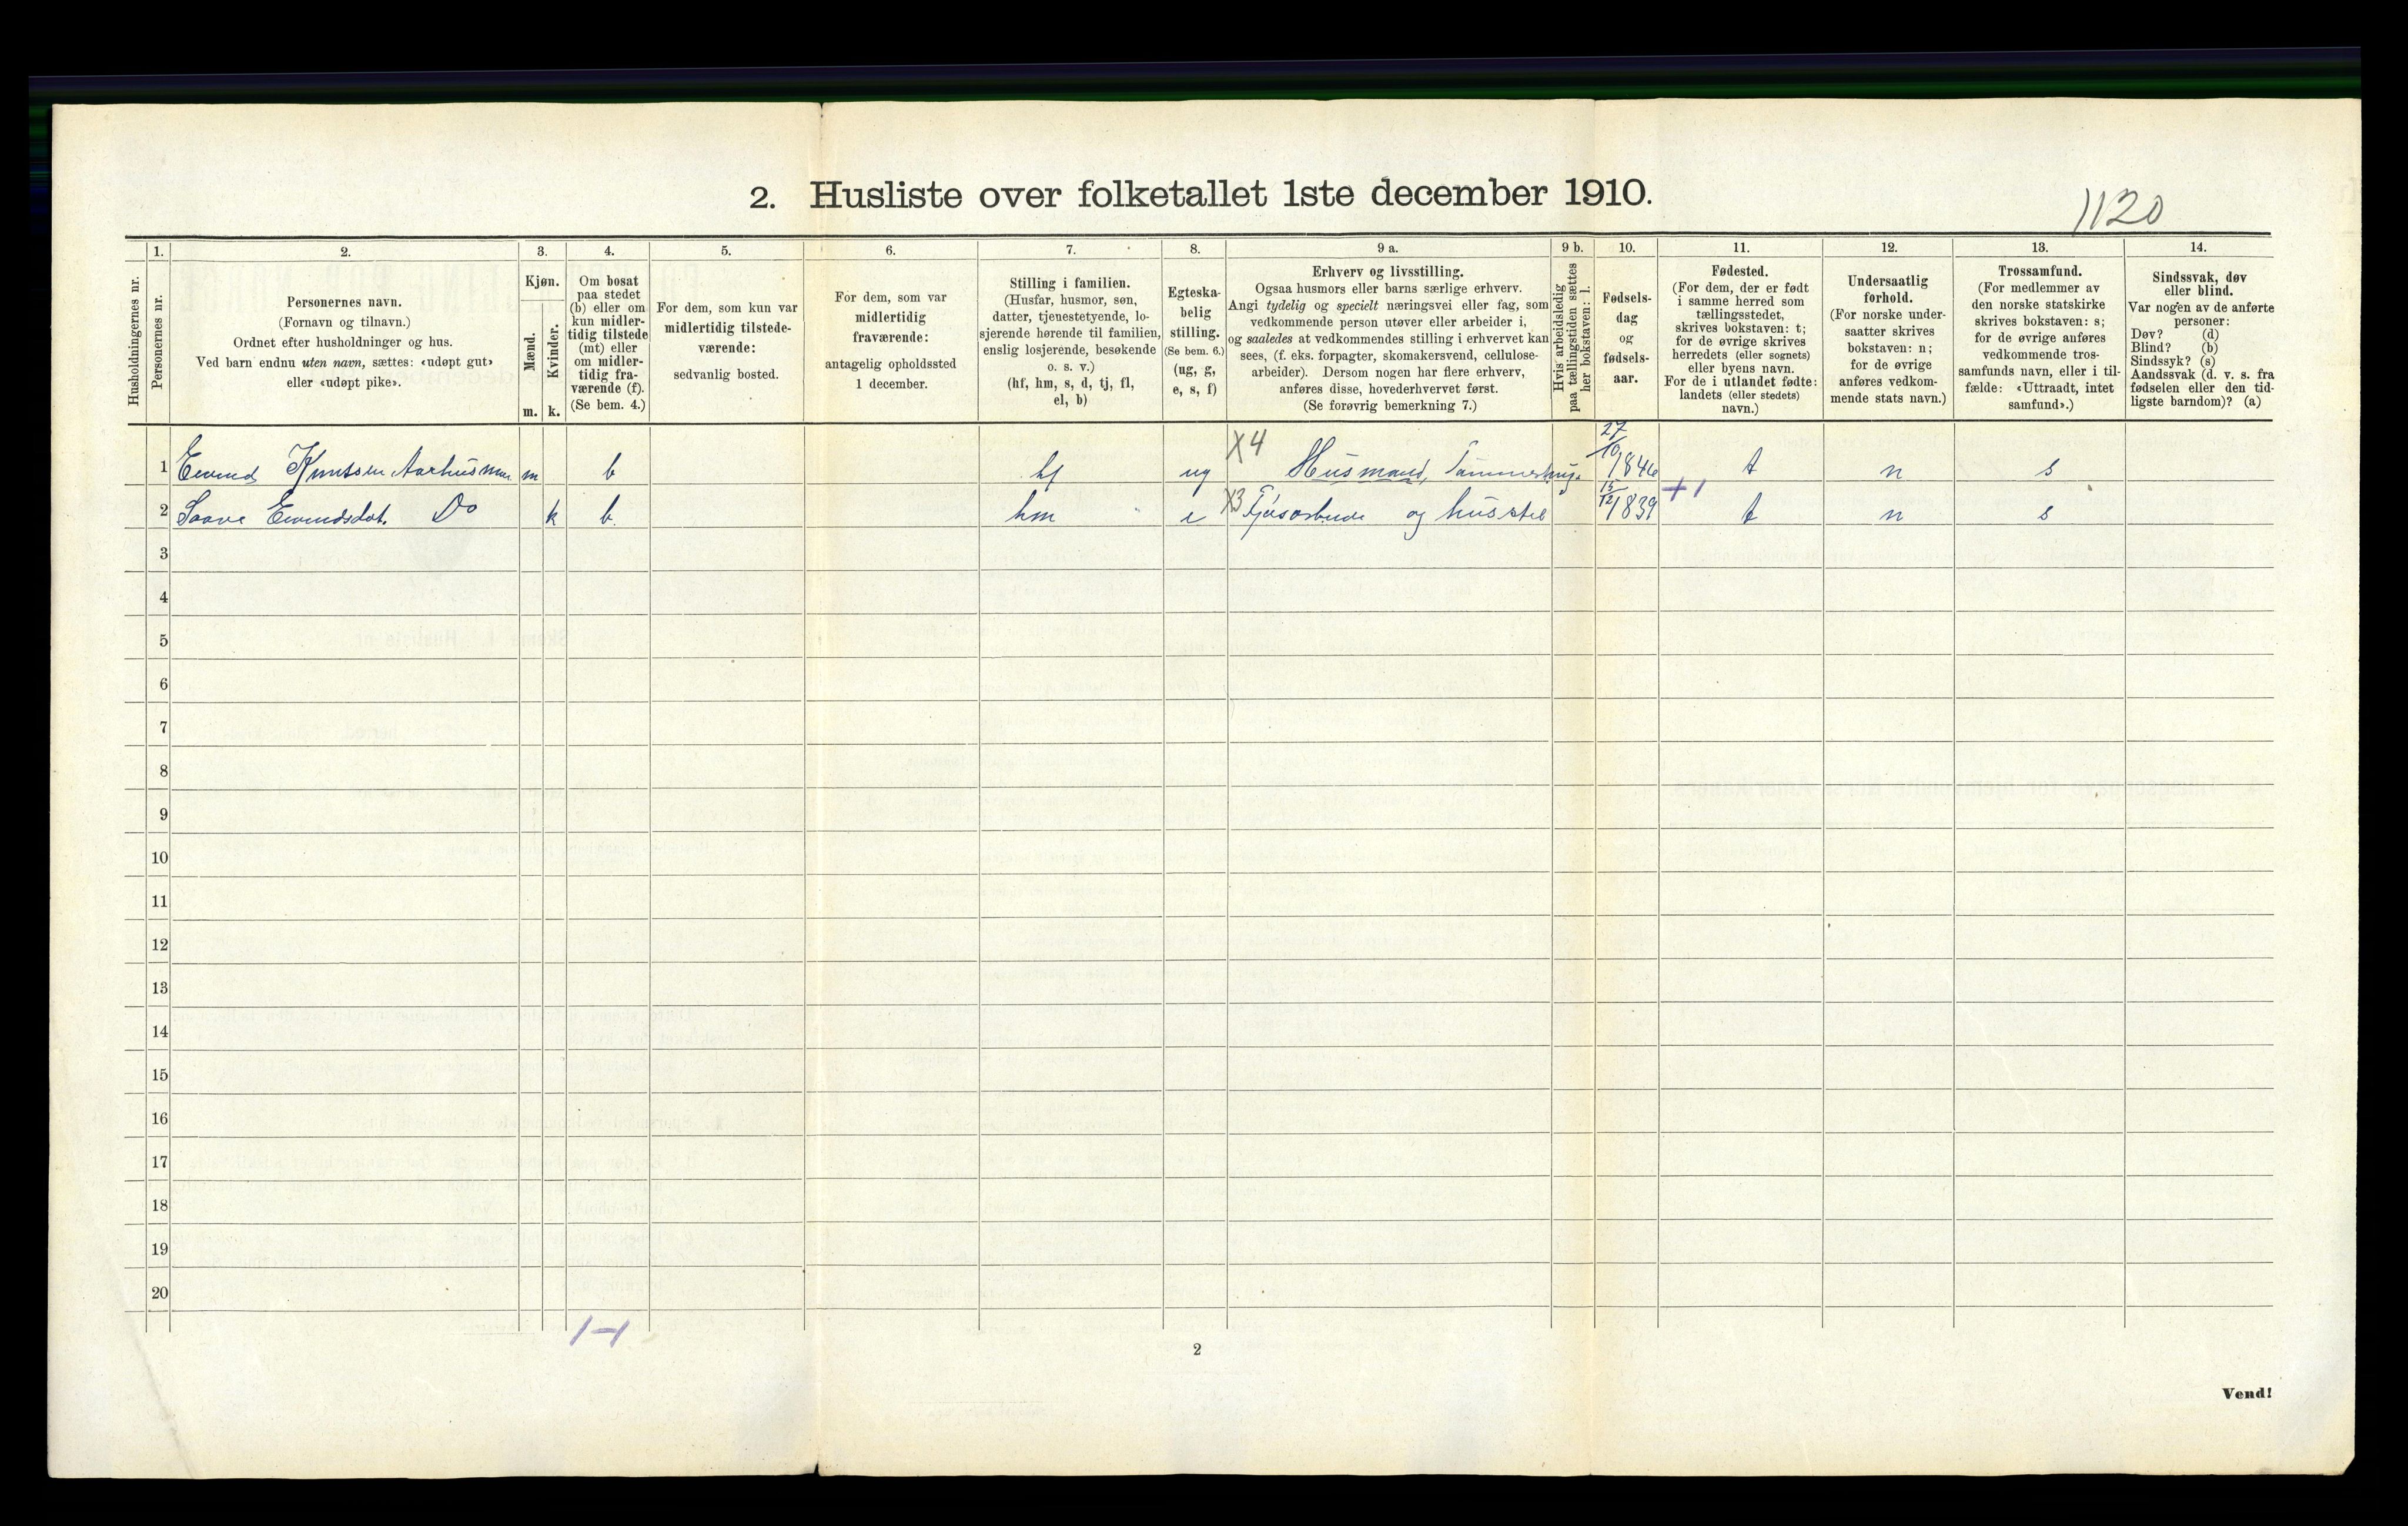 2. Husliste over folketallet 1ste december 1910.
1120
Husholdningernes nr.
1.
Personernes nr.
2.
Personernes navn.
(Fornavn og tilnavn.)
Ordnet efter husholdninger og hus.
Ved barn endnu uten navn, sættes: «udøpt gut»
eller «udøpt pike».
3.
Kjøn.
Mænd.
Kvinder.
m. k.
4.
Om bosat
paa stedet
(b) eller om
kun midler-
tidig tilstede
(mt) eller
om midler-
tidig fra-
værende (f).
(Se bem. 4.)
5.
For dem, som kun var
midlertidig tilstede-
værende:
sedvanlig bosted.
6.
For dem, som var
midlertidig
fraværende:
antagelig opholdssted
1 december.
7.
Stilling i familien.
(Husfar, husmor, søn,
datter, tjenestetyende, lo-
sjerende hørende til familien,
enslig losjerende, besøkende
o. s. v.)
(hf, hm, s, d, tj, fl,
el, b)
8.
Egteska-
belig
stilling.
(Se bem. 6.)
(ug, g,
e, s, f)
9 a.
Erhverv og livsstilling.
Ogsaa husmors eller barns særlige erhverv.
Angi tydelig og specielt næringsvei eller fag, som
vedkommende person utøver eller arbeider i,
og saaledes at vedkommendes stilling i erhvervet kan
sees, (f. eks. forpagter, skomakersvend, cellulose-
arbeider). Dersom nogen har flere erhverv,
anføres disse, hovederhvervet først.
(Se forøvrig bemerkning 7.)
9 b.
Hvis arbeidsledig
paa tællingstiden sættes
her bokstaven: l.
10.
Fødsels-
dag
og
fødsels-
aar.
11.
Fødested.
(For dem, der er født
i samme herred som
tællingsstedet,
skrives bokstaven: t;
for de øvrige skrives
herredets (eller sognets)
eller byens navn.
For de i utlandet fødte:
landets (eller stedets)
navn.)
12.
Undersaatlig
forhold.
(For norske under-
saatter skrives
bokstaven: n;
for de øvrige
anføres vedkom-
mende stats navn.)
13.
Trossamfund.
(For medlemmer av
den norske statskirke
skrives bokstaven: s;
for de øvrige anføres
vedkommende tros-
samfunds navn, eller i til-
fælde: «Uttraadt, intet
samfund».)
14.
Sindssvak, døv
eller blind.
Var nogen av de anførte
personer:
Døv? (d)
Blind? (b)
Sindssyk? (s)
Aandssvak (d. v. s. fra
fødselen eller den tid-
ligste barndom)? (a)
1 Eivind Knutsen Aarhusmoen m b hf ug X4 Husmand, Tømmerhug. 27/10 1846 t n s
2 Eivindsdot. Do k b. hm e X3 Fjøsarbeide og husstel 15/12 1839 +1 t n s
3
4
5
6
7
8
9
10
11
12
13
14
15
16
17
18
19
20
1-1
2
Vend!